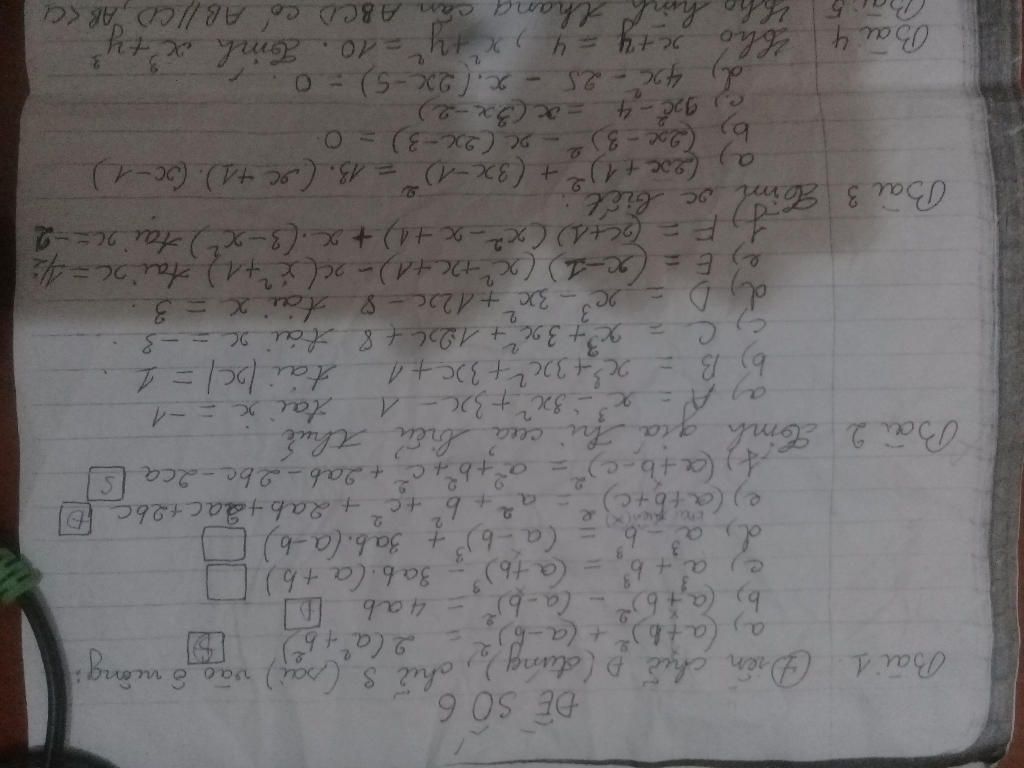 ĐỀ SỐ 6
Bài 1. Điền chữ Đ (đúng), chữ S (sai) vào ô vuông:
a, (a+b)² + (a-b)² = 2(a²+b²) Đ
b, (a+b)² - (a-b)² = 4ab Đ
c, a³ + b³ = (a+b)³ - 3ab.(a+b)
d, a³ - b³ = (a-b)³ + 3ab.(a-b)
e, (a+b+c)² = a² + b² + c² + 2ab + 2ac + 2bc Đ
f, (a+b-c)² = a²+b²+c²+2ab-2bc-2ca S
Bài 2 Tính giá trị của biểu thức
a, A = x³ - 3x² + 3x - 1 tại x = -1
b, B = x³ + 3x² + 3x + 1 tại |x| = 1
c, C = x³ + 3x² + 12x + 8 tại x = -3
d, D = x³ - 3x² + 12x - 8 tại x = 3
e, E = (x-1)(x²+x+1) - x(x²+1) tại x =
f, F = (x+1)(x²-x+1) + x.(3-x²) tại x = -2
Bài 3 Tìm x biết:
a, (2x+1)² + (3x-1)² = 13.(x+1).(x-1)
b, (2x-3)² - x(2x-3) = 0
c, 9x²-4 = x(3x-2)
d, 4x² - 25 - x.(2x-5) = 0
Bài 4 Cho x+y = 4, x²+y² = 10. Tính x³+y³
Bài 5 Cho hình thang cân ABCD có AB//CD, AB<C